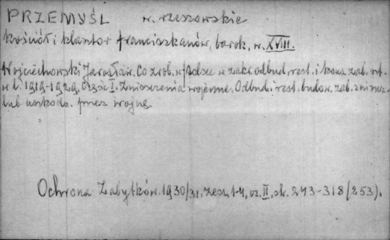 PRZEMYŚL w. rzeszowskie
Kościół i klasztor franciszkanów, barok, w. XVIII.
Wojciechowski Jarosław. Co zrob. w Polsce w zakr. odbud. rest. i kons. zab. szt.
w l. 1919-1929. Część I. Zniszczenia wojenne. Odbud. i rest. budow. zab. zniszcz.
lub uszkodz. przez wojnę.
Ochrona Zabytków. 1930/31. zesz. 1-4, cz. II, st. 243-318 (253).